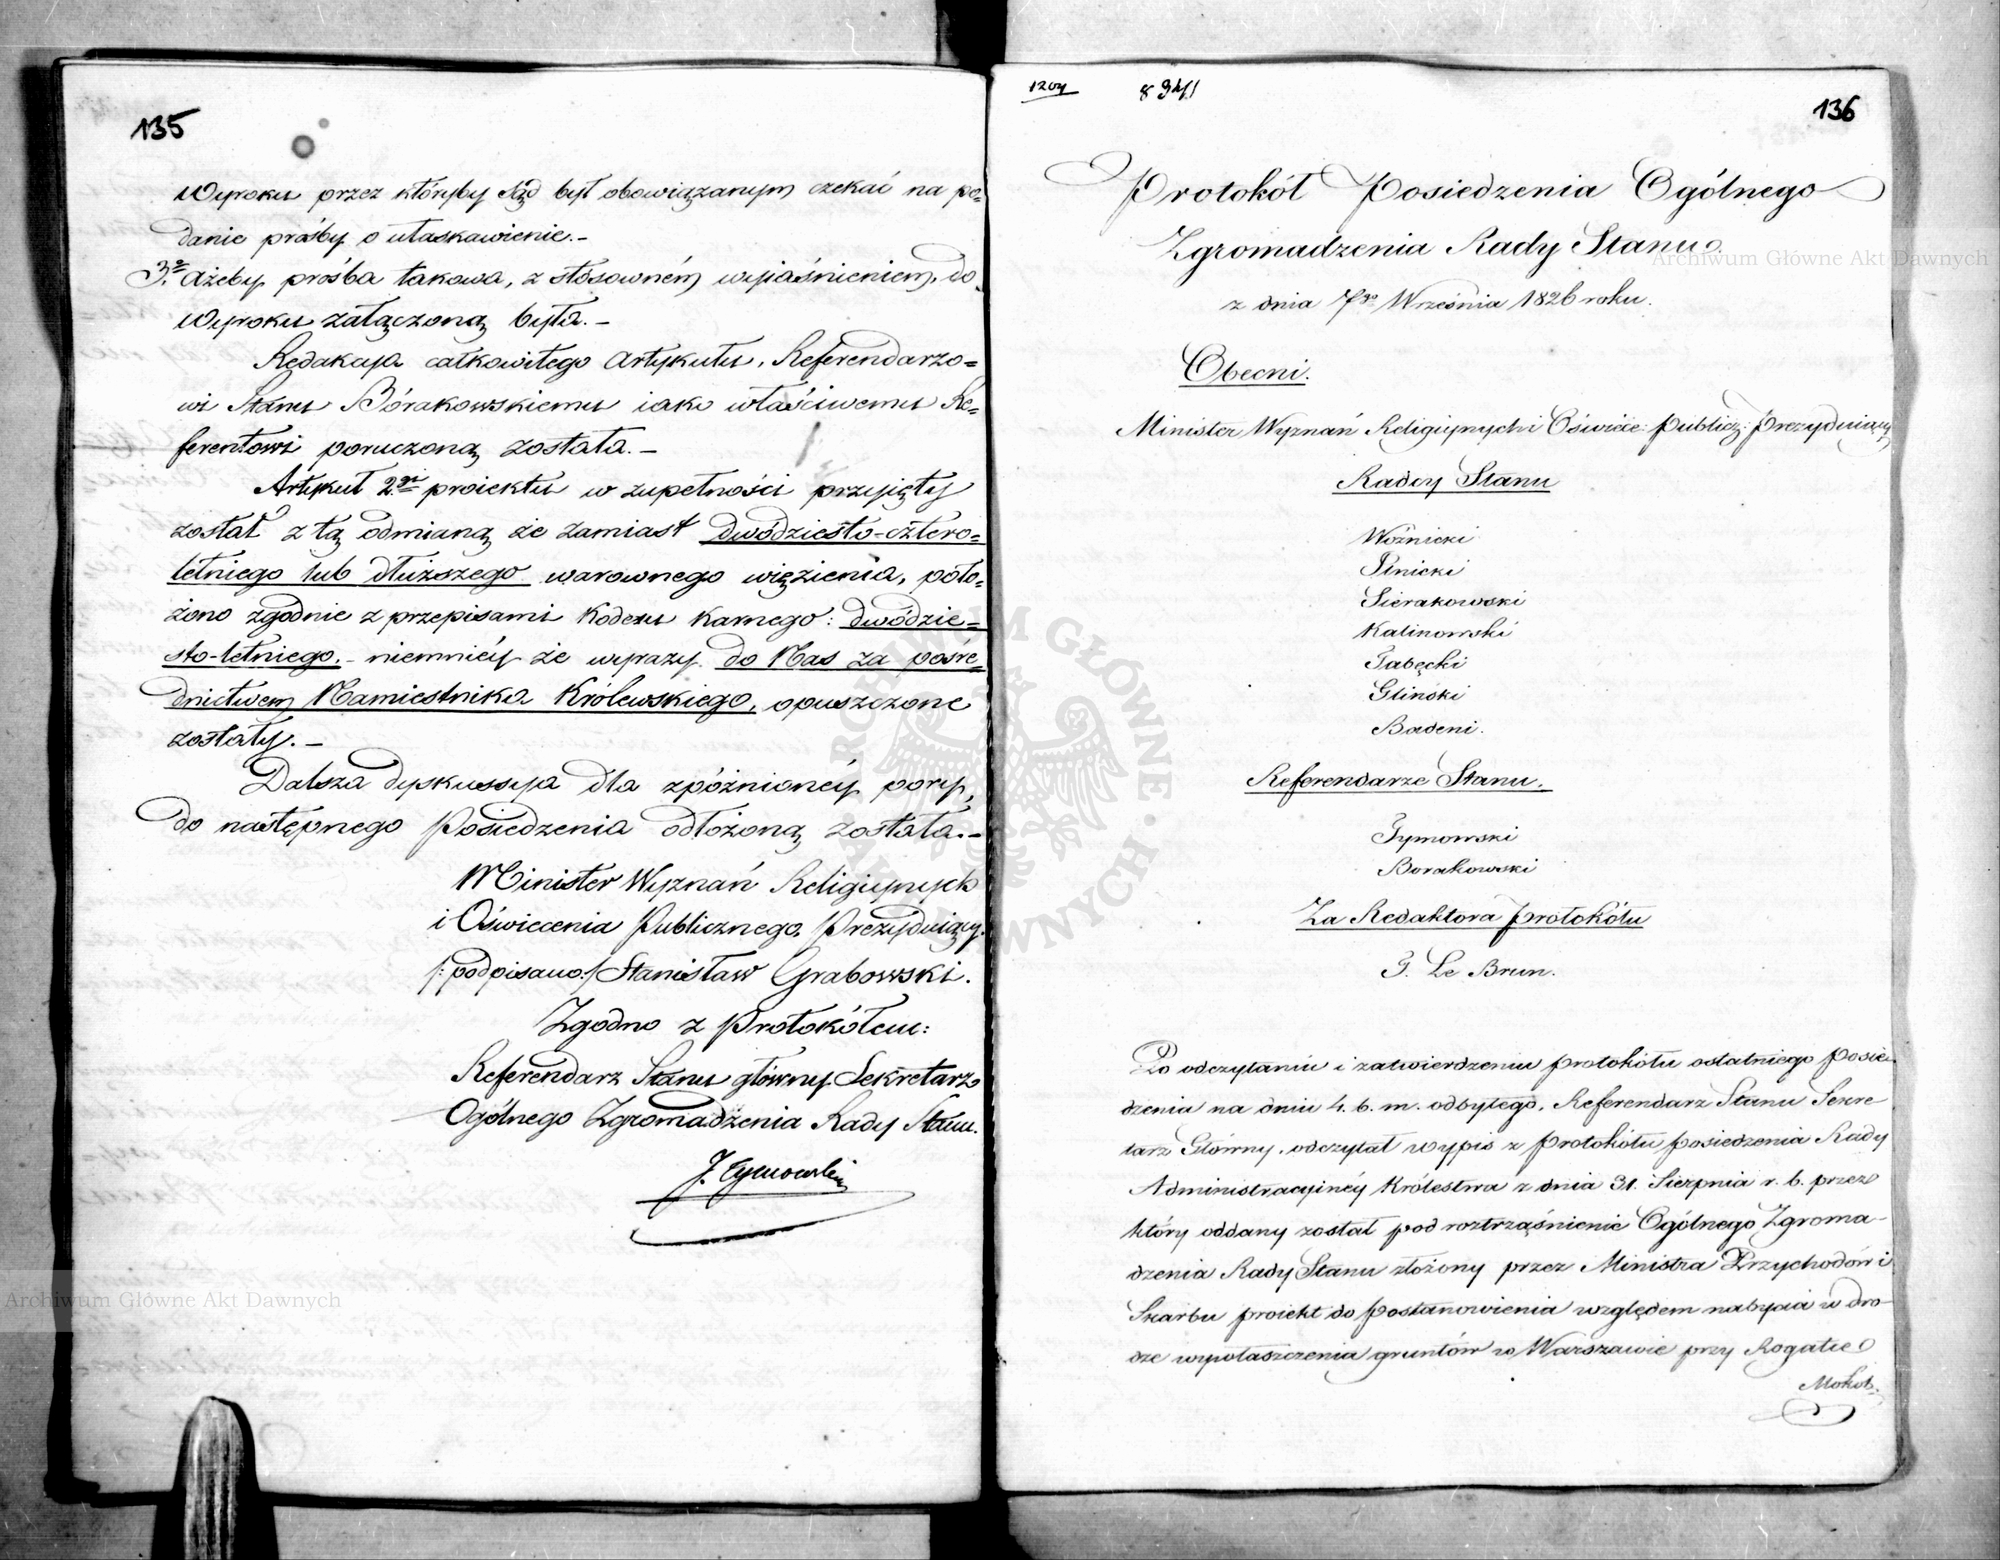 135
Wyroku przez któryby Sąd był obowiązanym czekać na po=
danie prośby o ułaskawienie.–
3º Ażeby prośba takowa, z stósowném wyiaśnieniem, do
Wyroku załączoną była.–
Redakcya całkowitego Artykułu, Referendarzo=
wi Stanu Bórakowskiemu iako właściwemu Re=
ferentowi poruczoną została.–
Artykuł 2gi proiektu w zupełności przyięty
został z tą odmianą że zamiast dwódziesto-cztero=
letniego lub dłuższego warownego więzienia, poło=
żono zgodnie z przepisami Kodexu Karnego: dwódzie=
sto-letniego,– niemniéy że wyrazy do Nas za pośre=
dnictwem Namiestnika Królewskiego, opuszczone
zostały.–
Dalsza dyskussya dla zpóźnionéy pory,
do następnego Posiedzenia odłożoną została.–
Minister Wyznań Religiynych
i Oświecenia Publicznego, Prezyduiący.
/:podpisano:/ Stanisław Grabowski.
Zgodno z Protokółem:
Referendarz Stanu główny Sekretarz
Ogólnego Zgromadzenia Rady Stanu.
J. Tymowski
1204
136
Protokół Posiedzenia Ogólnego
Zgromadzenia Rady Stanu
z dnia 7go Września 1826 roku.
Obecni.
Minister Wyznań Religiynych i Oświéce: Publicz: Prezyduiący
Radcy Stanu
Woźnicki
Linicki
Sierakowski
Kalinowski
Tabęcki
Gliński
Badeni.
Referendarze Stanu.
Tymowski
Borakowski
Za Redaktora Protokółu
G. Le Brun.
Po odczytaniu i zatwierdzeniu protokółu ostatniego Posie-
dzenia na dniu 4. b. m. odbytego, Referendarz Stanu Sekre
tarz Główny, odczytał wypis z Protokółu posiedzenia Rady
Administracyinéy Królestwa z dnia 31. Sierpnia r. b. przez
który oddany został pod roztrząśnienie Ogólnego Zgroma-
dzenia Rady Stanu złożony przez Ministra Przychodów i
Skarbu proiekt do Postanowienia względem nabycia w dro-
dze wywłaszczenia gruntów w Warszawie przy Rogatce
Mokot-
Archiwum Główne Akt Dawnych
Archiwum Główne Akt Dawnych
ARCHIWUM GŁÓWNE AKT DAWNYCH